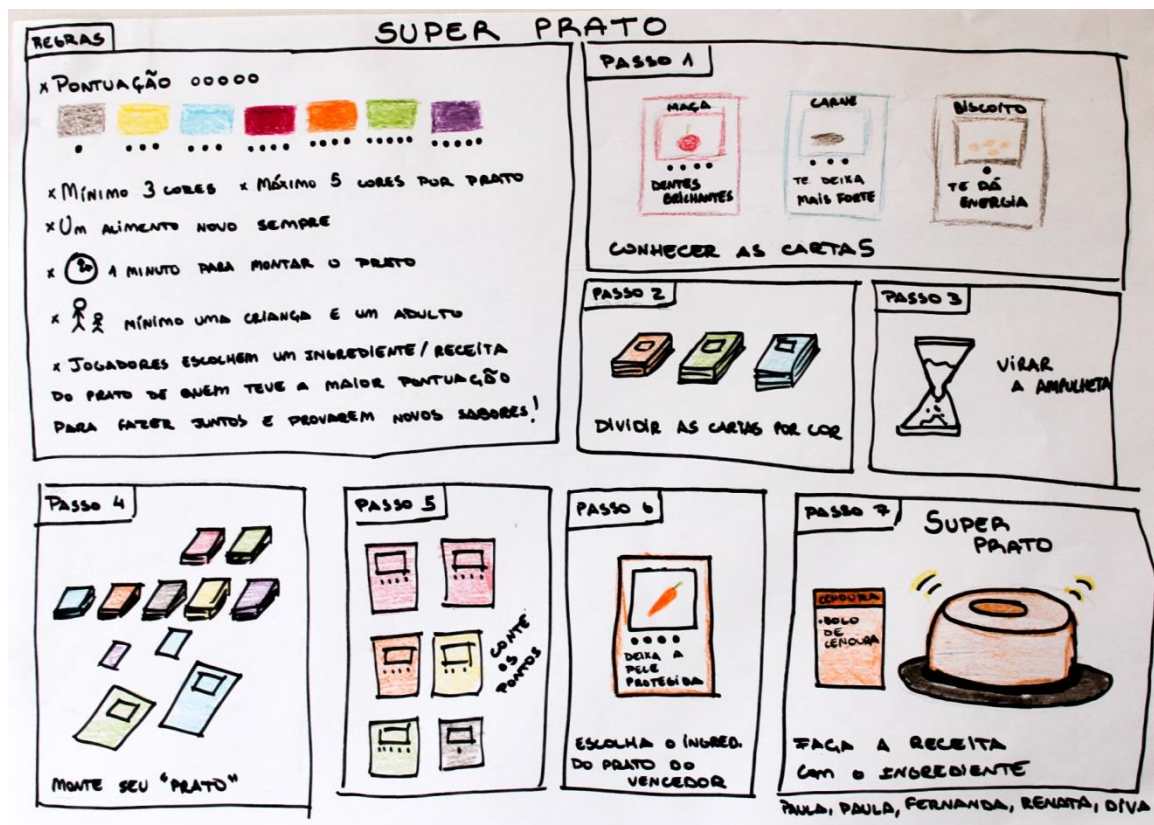 SUPER PRATO
REGRAS
x PONTUAÇÃO
x MÍNIMO 3 CORES x MÁXIMO 5 CORES POR PRATO
x UM ALIMENTO NOVO SEMPRE
x 1 MINUTO PARA MONTAR O PRATO
x MÍNIMO UMA CRIANÇA E UM ADULTO
x JOGADORES ESCOLHEM UM INGREDIENTE/RECEITA
DO PRATO DE QUEM TEVE A MAIOR PONTUAÇÃO
PARA FAZER JUNTOS E PROVAREM NOVOS SABORES!
PASSO 1
MAÇA
DENTES
BRILHANTES
CARNE
TE DEIXA
MAIS FORTE
BISCOITO
TE DÁ
ENERGIA
CONHECER AS CARTAS
PASSO 2
DIVIDIR AS CARTAS POR COR
PASSO 3
VIRAR
A AMPULHETA
PASSO 4
MONTE SEU "PRATO"
PASSO 5
CONTE
OS
PONTOS
PASSO 6
DEIXA A
PELE
PROTEGIDA
ESCOLHA O INGRED.
DO PRATO DO
VENCEDOR
PASSO 7
SUPER
PRATO
CENOURA
•BOLO
DE
CENOURA
FAÇA A RECEITA
COM O INGREDIENTE
PAULA, PAULA, FERNANDA, RENATA, DIVA